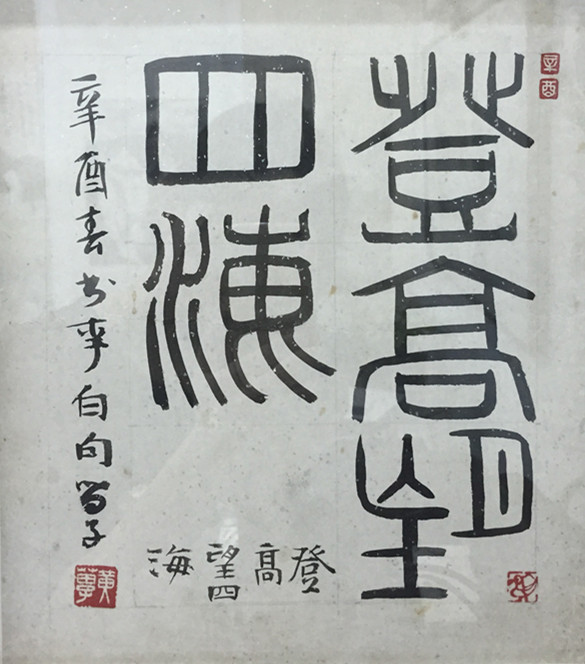 辛酉
登高望
四海
登高望四海
辛酉春书李白句